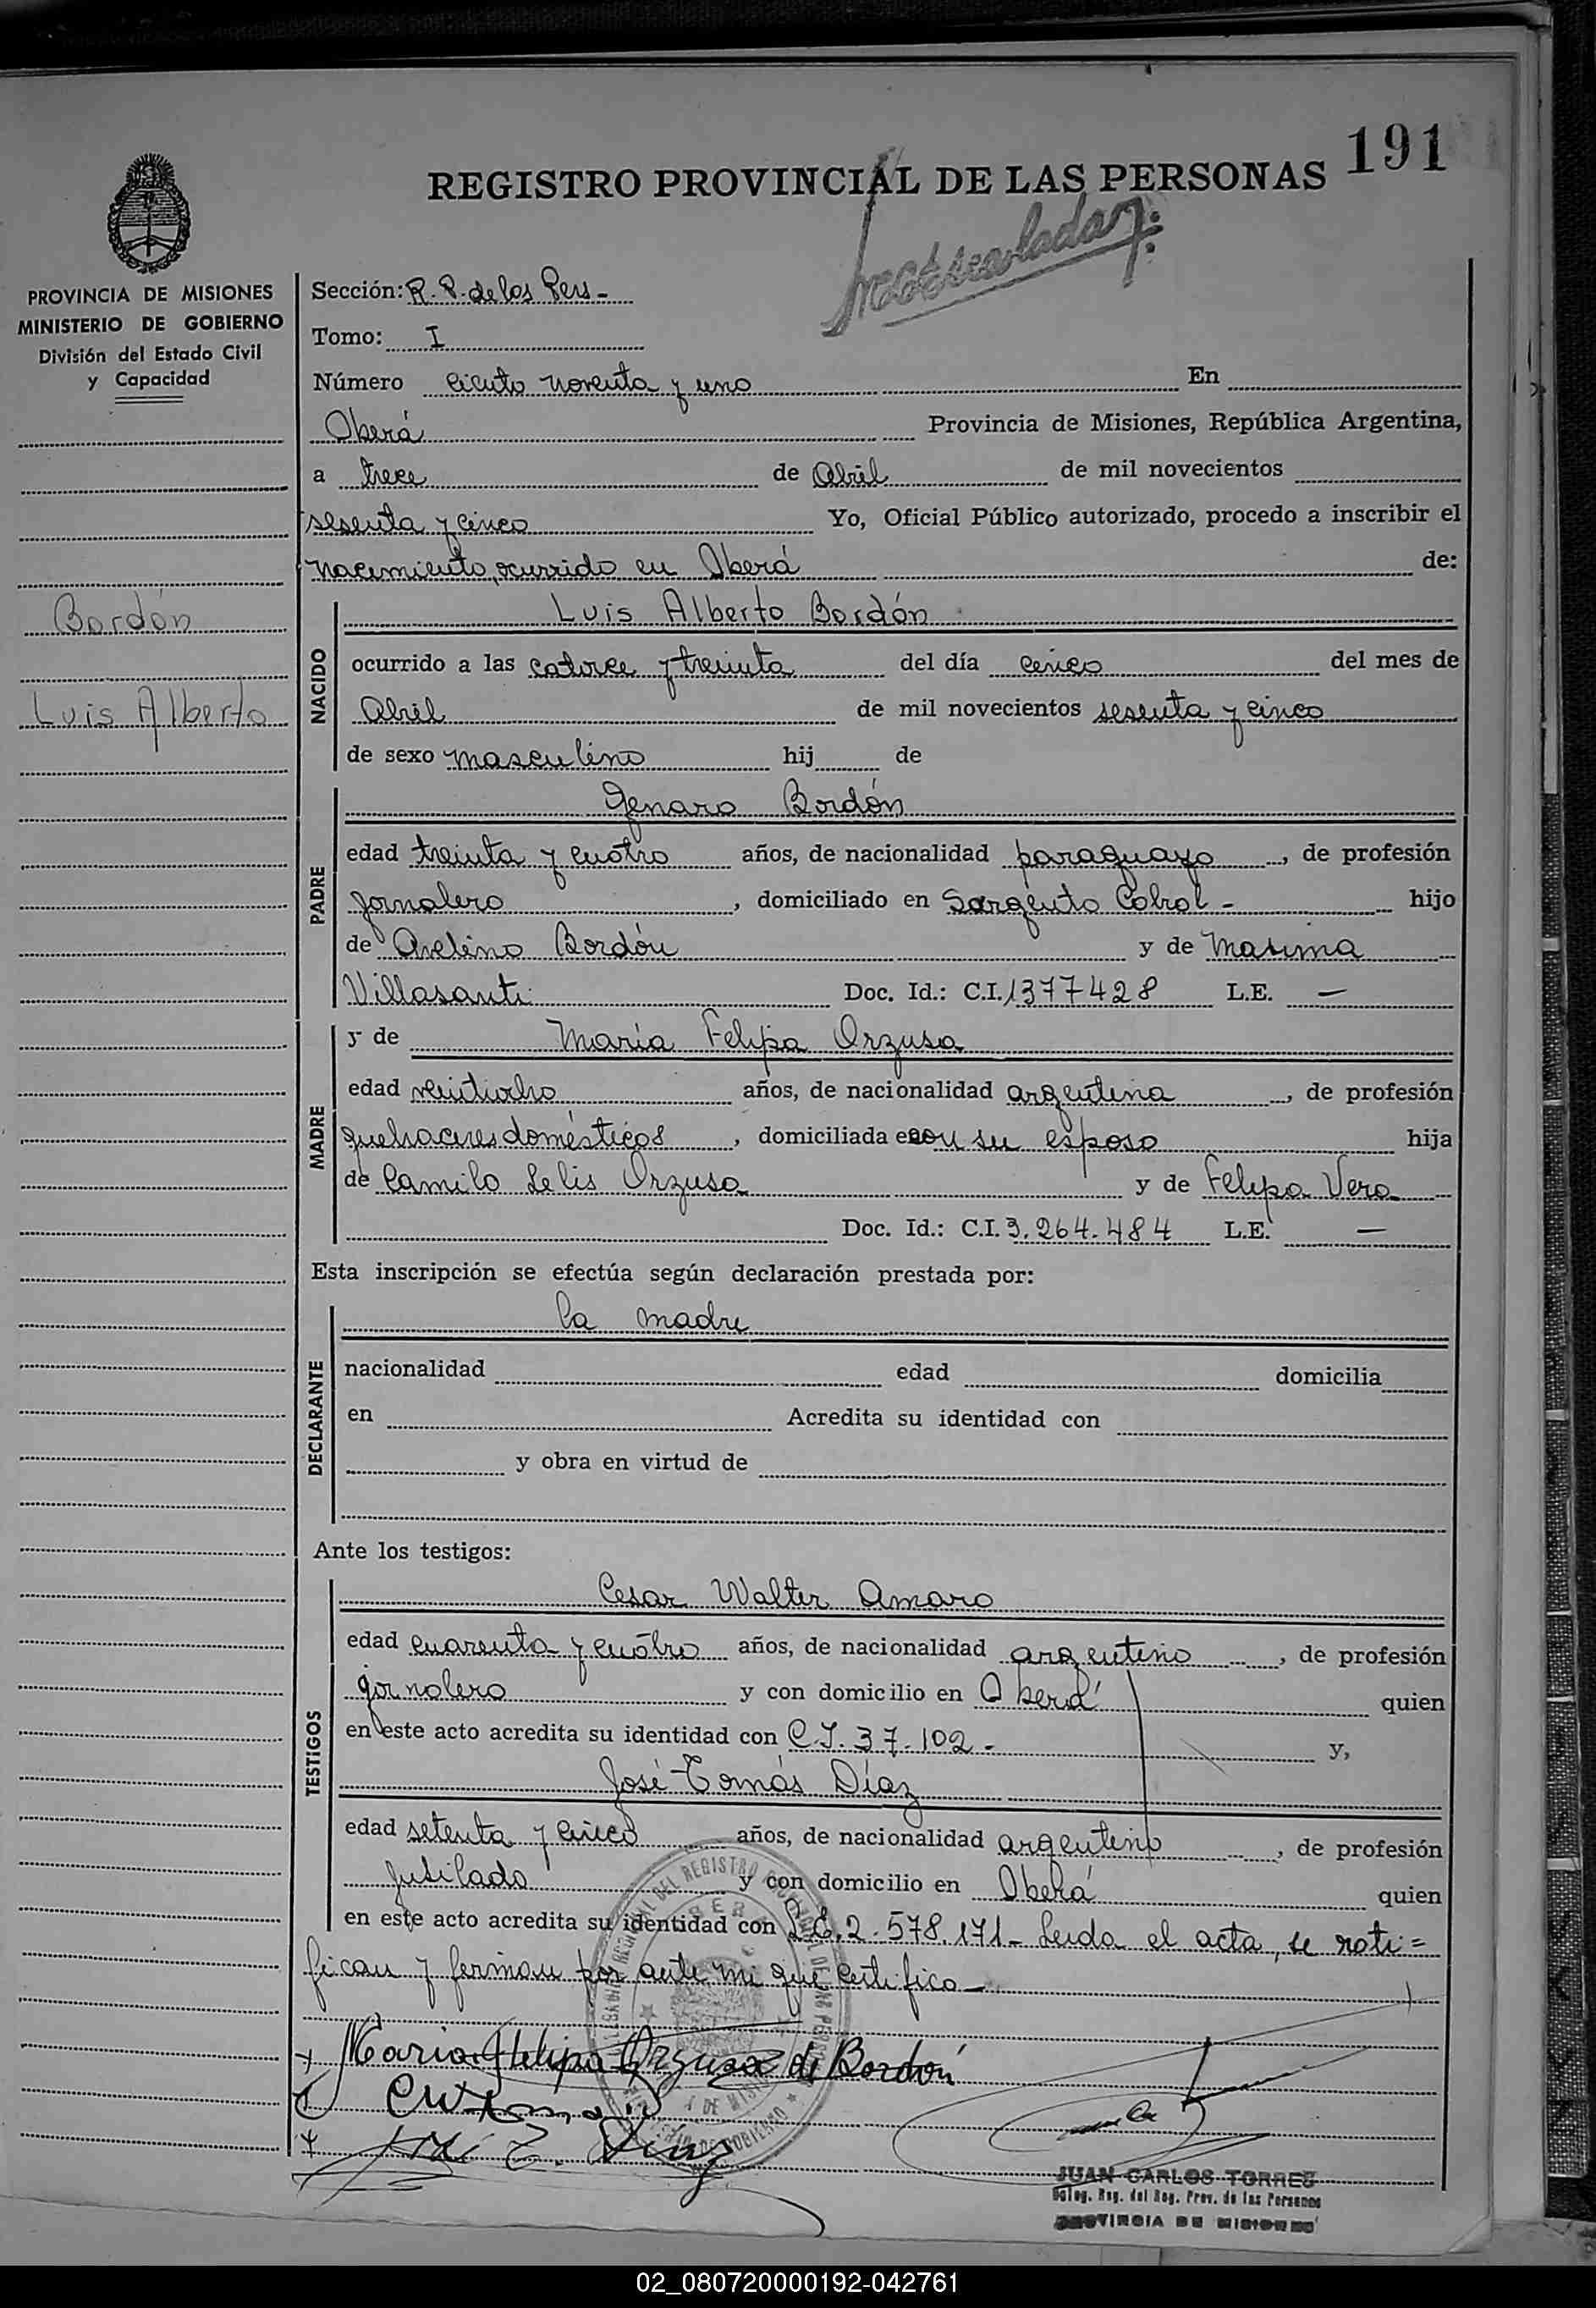 191
REGISTRO PROVINCIAL DE LAS PERSONAS
PROVINCIA DE MISIONES
MINISTERIO DE GOBIERNO
División del Estado Civil
y Capacidad
Bordón
Luis Alberto
Sección: R. P. de las Pers -
Tomo: I
Número ciento noventa y uno En
Oberá Provincia de Misiones, República Argentina,
a trece de Abril de mil novecientos
sesenta y cinco Yo, Oficial Público autorizado, procedo a inscribir el
nacimiento ocurrido en Oberá de:
NACIDO
Luis Alberto Bordón
ocurrido a las catorce y treinta del día cinco del mes de
Abril de mil novecientos sesenta y cinco
de sexo masculino hij de
PADRE
Genaro Bordón
edad treinta y cuatro años, de nacionalidad paraguayo, de profesión
jornalero, domiciliado en Sargento Cabral - hijo
de Avelino Bordón y de Maxima
Villasanti Doc. Id.: C.I. 1377428 L.E. —
MADRE
y de María Felipa Orzusa
edad veintiocho años, de nacionalidad argentina, de profesión
quehaceres domésticos, domiciliada con su esposo hija
de Camilo Lelis Orzusa y de Felipa Vera
Doc. Id.: C.I. 3.264.484 L.E. —
Esta inscripción se efectúa según declaración prestada por:
DECLARANTE
la madre
nacionalidad edad domicilia
en Acredita su identidad con
y obra en virtud de
Ante los testigos:
TESTIGOS
Cesar Walter Amaro
edad cuarenta y cuatro años, de nacionalidad argentino, de profesión
jornalero y con domicilio en Oberá quien
en este acto acredita su identidad con C.I. 37.102 - y,
José Tomás Díaz
edad setenta y cinco años, de nacionalidad argentino, de profesión
Jubilado y con domicilio en Oberá quien
en este acto acredita su identidad con L.E. 2.578.171 - Leida el acta, se rati=
fican y firman por ante mi que certifico -
Maria Felipa Orzusa de Bordón
José T. Díaz
JUAN CARLOS TORRES
Deleg. Reg. del Reg. Prov. de las Personas
PROVINCIA DE MISIONES
02_080720000192-042761